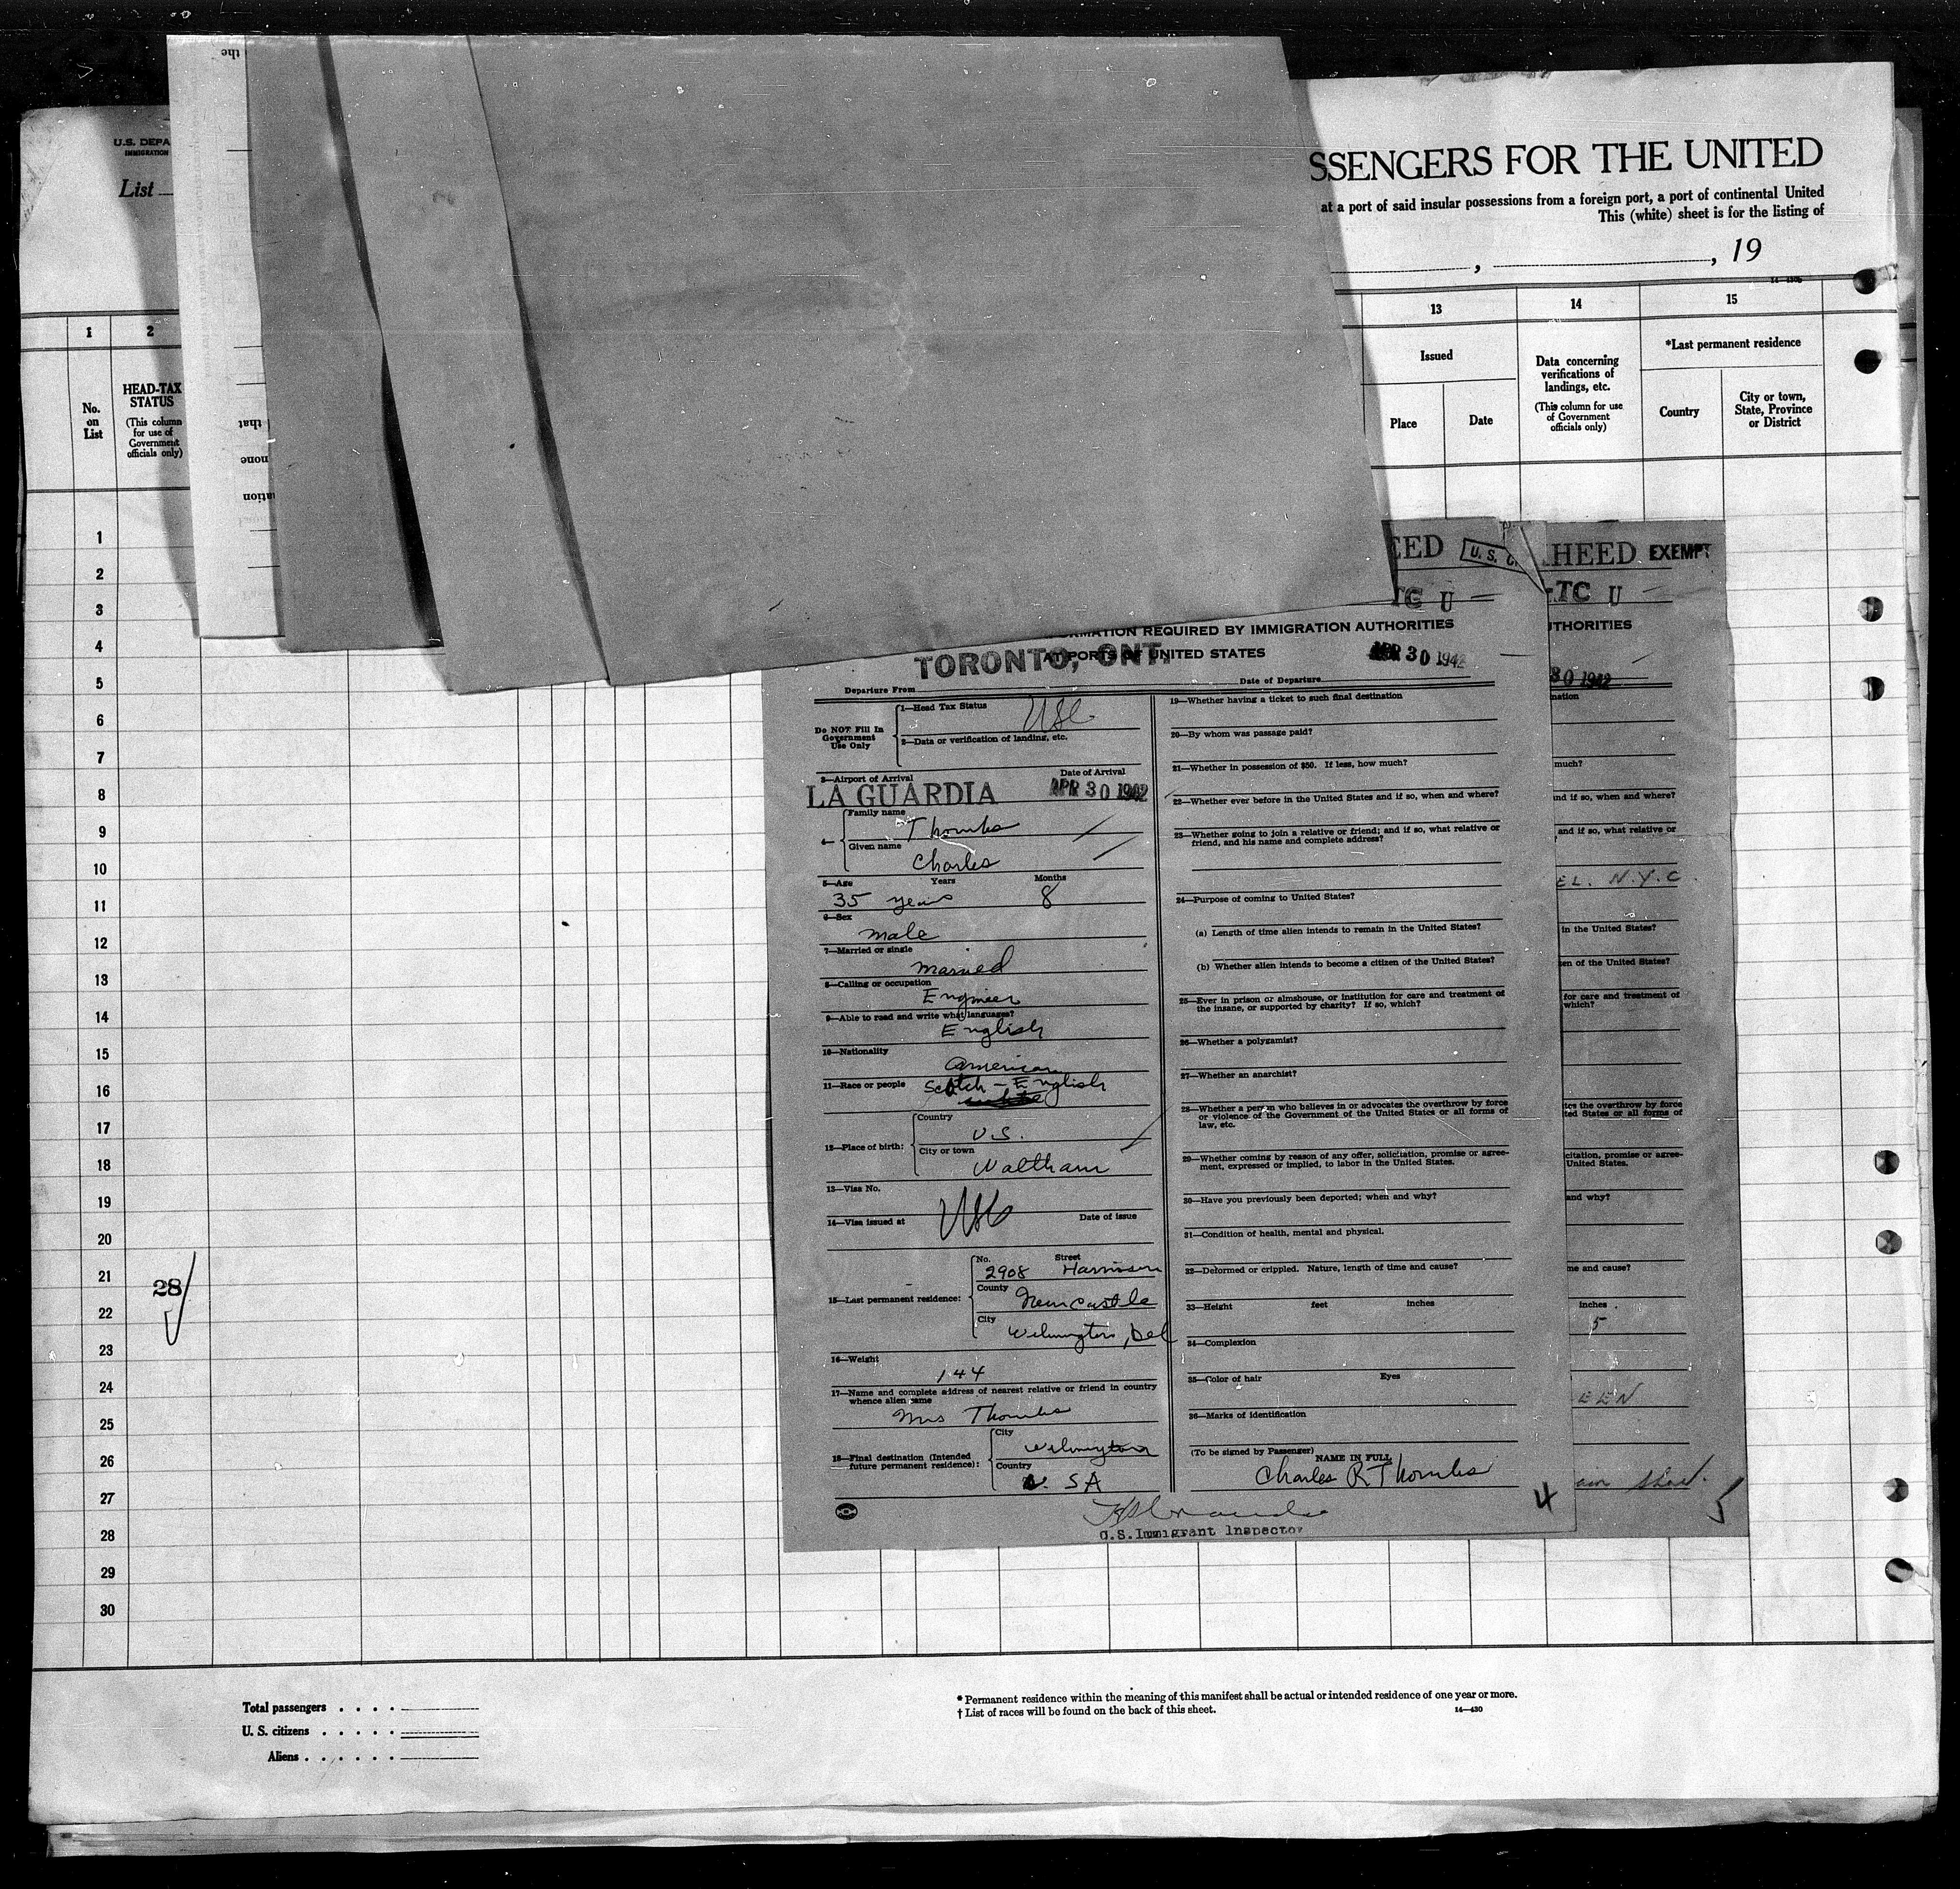 the
U.S. DEPA
IMMIGRATION
List
SSENGERS FOR THE UNITED
at a port of said insular possessions from a foreign port, a port of continental United
This (white) sheet is for the listing of
, , 19
1 2 13 14 15
No. on List
HEAD-TAX STATUS
(This column for use of Government officials only)
that
none
Issued
Place Date
Data concerning verifications of landings, etc.
(This column for use of Government officials only)
*Last permanent residence
Country
City or town, State, Province or District
1
2
3
4
5
6
7
8
9
10
11
12
13
14
15
16
17
18
19
20
21
22
23
24
25
26
27
28
29
30
28
EED U. S. C HEED EXEMPT
TC U TC U
ORMATION REQUIRED BY IMMIGRATION AUTHORITIES
AT PORTS OF UNITED STATES
TORONTO, ONT. APR 30 1942
Departure From Date of Departure
Do NOT Fill In
Government
Use Only
1—Head Tax Status USC
2—Data or verification of landing, etc.
3—Airport of Arrival Date of Arrival
LA GUARDIA APR 30 1942
4— Family name Thombs
Given name Charles
5—Age Years Months
35 years 8
6—Sex
male
7—Married or single
married
8—Calling or occupation
Engineer
9—Able to read and write what languages?
English
10—Nationality
American
11—Race or people Scotch - English
12—Place of birth: Country
U.S.
City or town
Waltham
13—Visa No.
USC
14—Visa issued at Date of issue
15—Last permanent residence: No. Street
2908 Harrison
County
Newcastle
City
Wilmington, Del
16—Weight
144
17—Name and complete address of nearest relative or friend in country
whence alien came
Mrs Thombs
18—Final destination (Intended
future permanent residence): City
Wilmington
Country
U. S A
19—Whether having a ticket to such final destination
20—By whom was passage paid?
21—Whether in possession of $50. If less, how much?
22—Whether ever before in the United States and if so, when and where?
23—Whether going to join a relative or friend; and if so, what relative or
friend, and his name and complete address?
24—Purpose of coming to United States?
(a) Length of time alien intends to remain in the United States?
(b) Whether alien intends to become a citizen of the United States?
25—Ever in prison or almshouse, or institution for care and treatment of
the insane, or supported by charity? If so, which?
26—Whether a polygamist?
27—Whether an anarchist?
28—Whether a person who believes in or advocates the overthrow by force
or violence of the Government of the United States or all forms of
law, etc.
29—Whether coming by reason of any offer, solicitation, promise or agree-
ment, expressed or implied, to labor in the United States.
30—Have you previously been deported; when and why?
31—Condition of health, mental and physical.
32—Deformed or crippled. Nature, length of time and cause?
33—Height feet inches
34—Complexion
35—Color of hair Eyes
36—Marks of identification
(To be signed by Passenger)
NAME IN FULL
Charles R Thombs
4
U.S. Immigrant Inspector
UTHORITIES
30 1942
nation
much?
and if so, when and where?
, and if so, what relative or
EL. N.Y.C.
in the United States?
zen of the United States?
for care and treatment of
which?
tes the overthrow by force
ted States or all forms of
icitation, promise or agree-
United States.
and why?
me and cause?
inches
5
EEN
Total passengers . . . .
U. S. citizens . . . . .
Aliens . . . . . .
* Permanent residence within the meaning of this manifest shall be actual or intended residence of one year or more.
† List of races will be found on the back of this sheet. 14—430